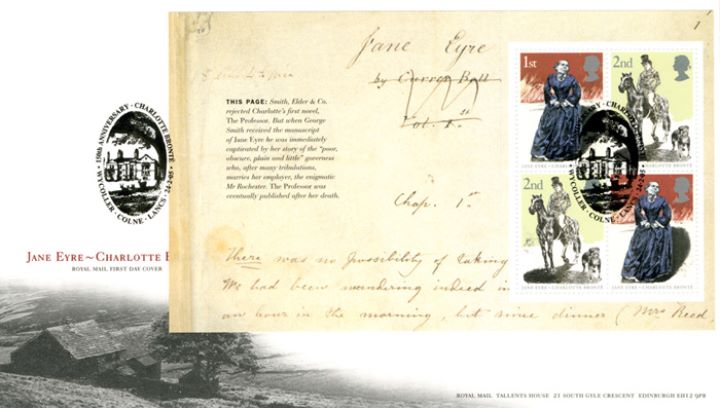 1
Jane Eyre
by Currer Bell
Vol. 1.st
THIS PAGE: Smith, Elder & Co.
rejected Charlotte's first novel,
The Professor. But when George
Smith received the manuscript
of Jane Eyre he was immediately
captivated by her story of the "poor,
obscure, plain and little" governess
who, after many tribulations,
marries her employer, the enigmatic
Mr Rochester. The Professor was
eventually published after her death.
Chap. 1.st
There was no possibility of taking
We had been wandering indeed in
an hour in the morning, but since dinner (Mrs Reed,
1st
2nd
JANE EYRE · CHARLOTTE BRONTË
2nd
JANE EYRE · CHARLOTTE BRONTË
JANE EYRE · CHARLOTTE BRONTË
WYCOLLER · COLNE · LANCS · 24·2·05
150th ANNIVERSARY · CHARLOTTE BRONTË
WYCOLLER · COLNE · LANCS · 24·2·05
JANE EYRE ~ CHARLOTTE
ROYAL MAIL FIRST DAY COVER
ROYAL MAIL TALLENTS HOUSE 21 SOUTH GYLE CRESCENT EDINBURGH EH12 9PB